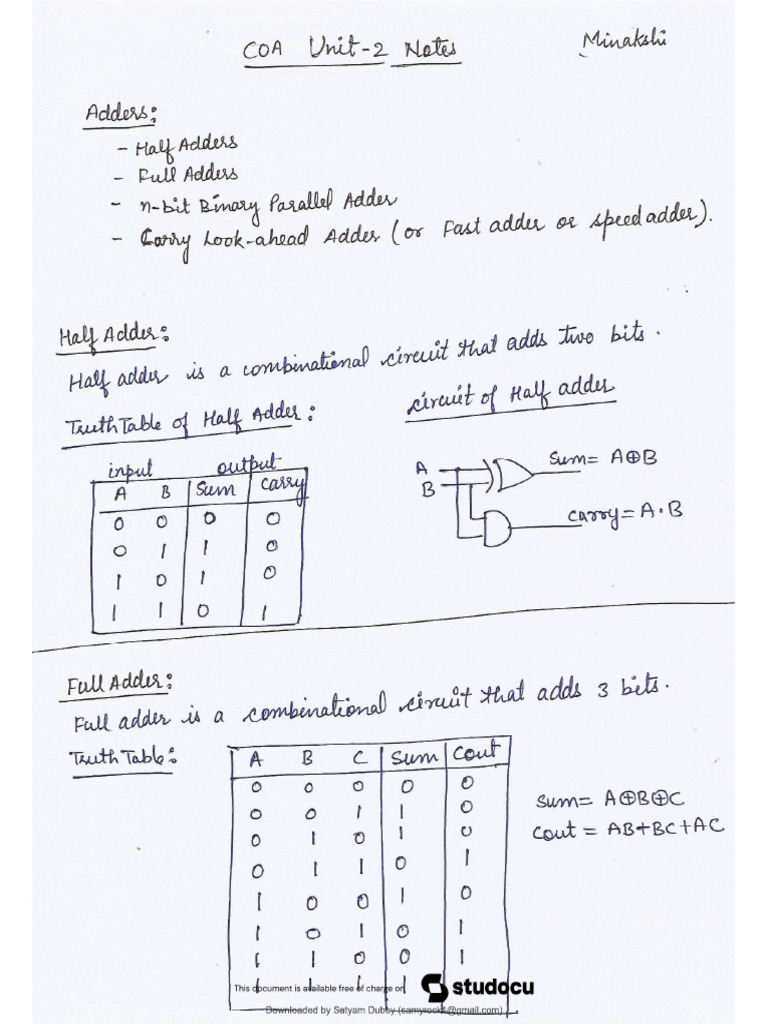 COA Unit-2 Notes
Minakshi
Adders:
- Half Adders
- Full Adders
- n-bit Binary Parallel Adder
- Carry Look-ahead Adder (or Fast adder or speed adder).
Half Adder:
Half adder is a combinational circuit that adds two bits.
Truth Table of Half Adder:
input output
A B Sum Carry
0 0 0 0
0 1 1 0
1 0 1 0
1 1 0 1
Circuit of Half adder
A
B
Sum = A⊕B
Carry = A·B
Full Adder:
Full adder is a combinational circuit that adds 3 bits.
Truth Table:
A B C Sum Cout
0 0 0 0 0
0 0 1 1 0
0 1 0 1 0
0 1 1 0 1
1 0 0 1 0
1 0 1 0 1
1 1 0 0 1
Sum = A⊕B⊕C
Cout = AB+BC+AC
This document is available free of charge on
studocu
Downloaded by Satyam Dubey (samyrock4@gmail.com)